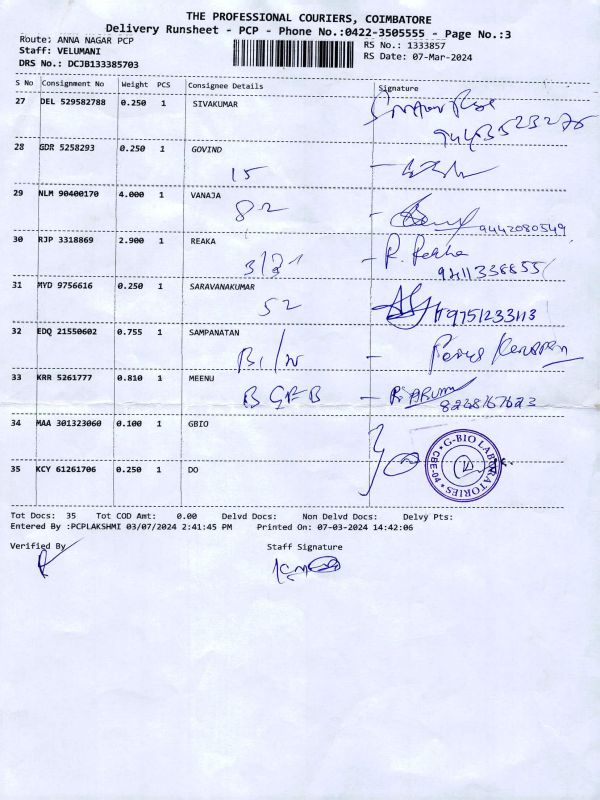 THE PROFESSIONAL COURIERS, COIMBATORE
Delivery Runsheet - PCP - Phone No.:0422-3505555 - Page No.:3
Route: ANNA NAGAR PCP
RS No.: 1333857
Staff: VELUMANI
RS Date: 07-Mar-2024
DRS No.: DCJB133385703
S No Consignment No Weight PCS Consignee Details Signature
27 DEL 529582788 0.250 1 SIVAKUMAR
28 GDR 5258293 0.250 1 GOVIND
15
29 NLM 90400170 4.000 1 VANAJA
82 9442080549
30 RJP 3318869 2.900 1 REAKA
R. Rekha
31 MYD 9756616 0.250 1 SARAVANAKUMAR
52 9751233113
32 EDQ 21550602 0.755 1 SAMPANATAN
33 KRR 5261777 0.810 1 MEENU
8248167623
34 MAA 301323060 0.100 1 GBIO
G-BIO LABORATORIES
CBE-04
35 KCY 61261706 0.250 1 DO
Tot Docs: 35 Tot COD Amt: 0.00 Delvd Docs: Non Delvd Docs: Delvy Pts:
Entered By :PCPLAKSHMI 03/07/2024 2:41:45 PM Printed On: 07-03-2024 14:42:06
Verified By
Staff Signature